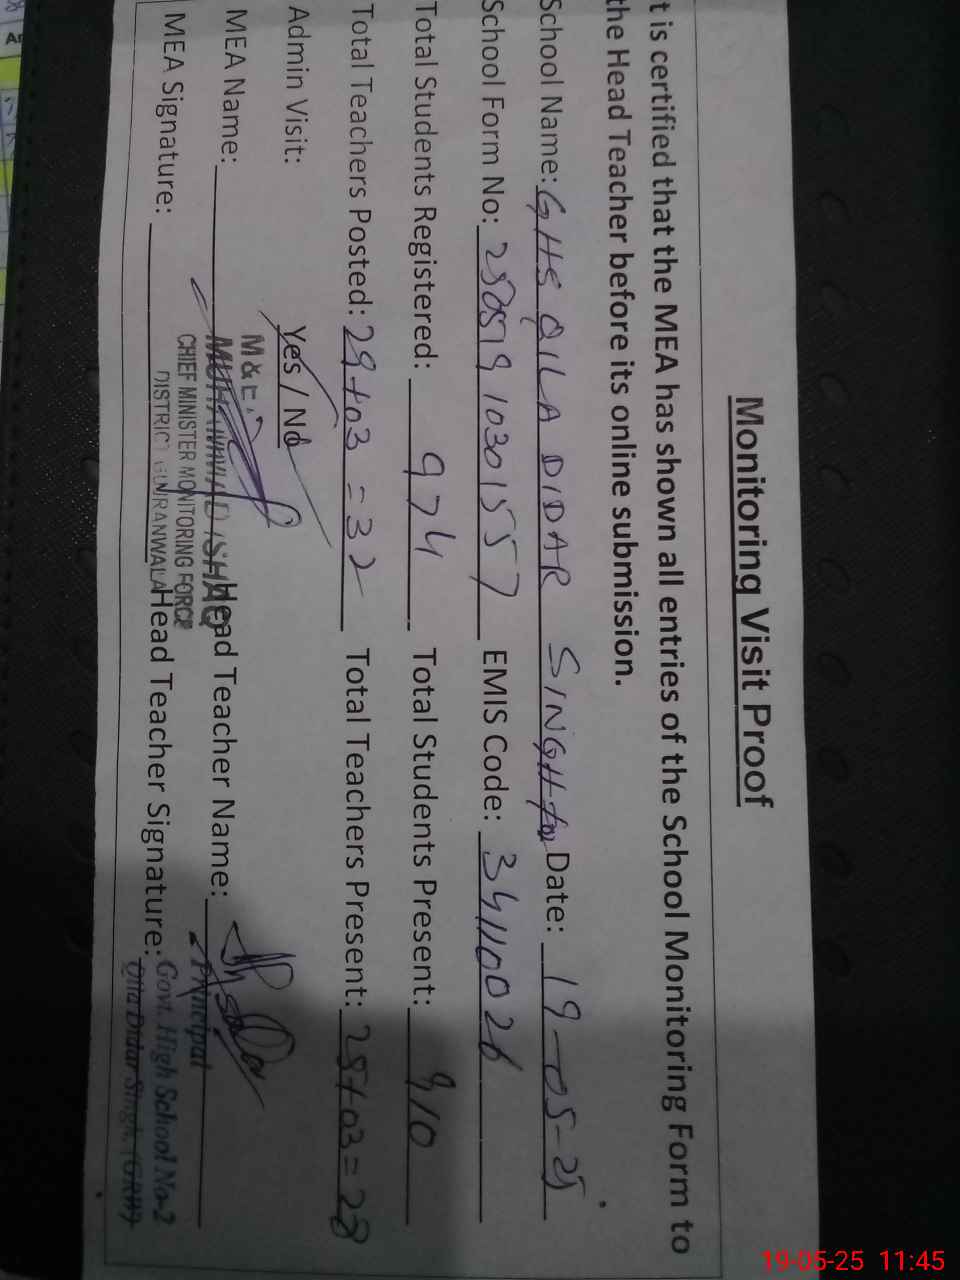 Monitoring Visit Proof
t is certified that the MEA has shown all entries of the School Monitoring Form to
the Head Teacher before its online submission.
School Name: GHS QILA DIDAR SINGH Date: 19-05-25
School Form No: 2505191030157 EMIS Code: 34110026
Total Students Registered: 974 Total Students Present: 910
Total Teachers Posted: 29+03=32 Total Teachers Present: 25+03=28
Admin Visit: Yes / No
MEA Name: MUHAMMAD ISHAQ Head Teacher Name:
MEA Signature: Head Teacher Signature:
CHIEF MINISTER MONITORING FORCE
DISTRICT GUJRANWALA
Principal
Govt. High School No-2
Qila Didar Singh.
19-05-25 11:45